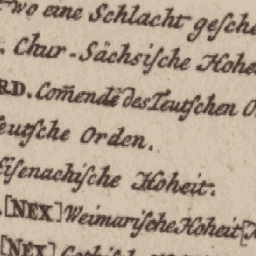 wo eine Schlacht gesche
. Chur-Sächsische Hohei
RD. Com̄ende des Teutschen O
eutsche Orden.
Eisenachische Hoheit.
. [NEX] Weimarische Hoheit [
[NEX]